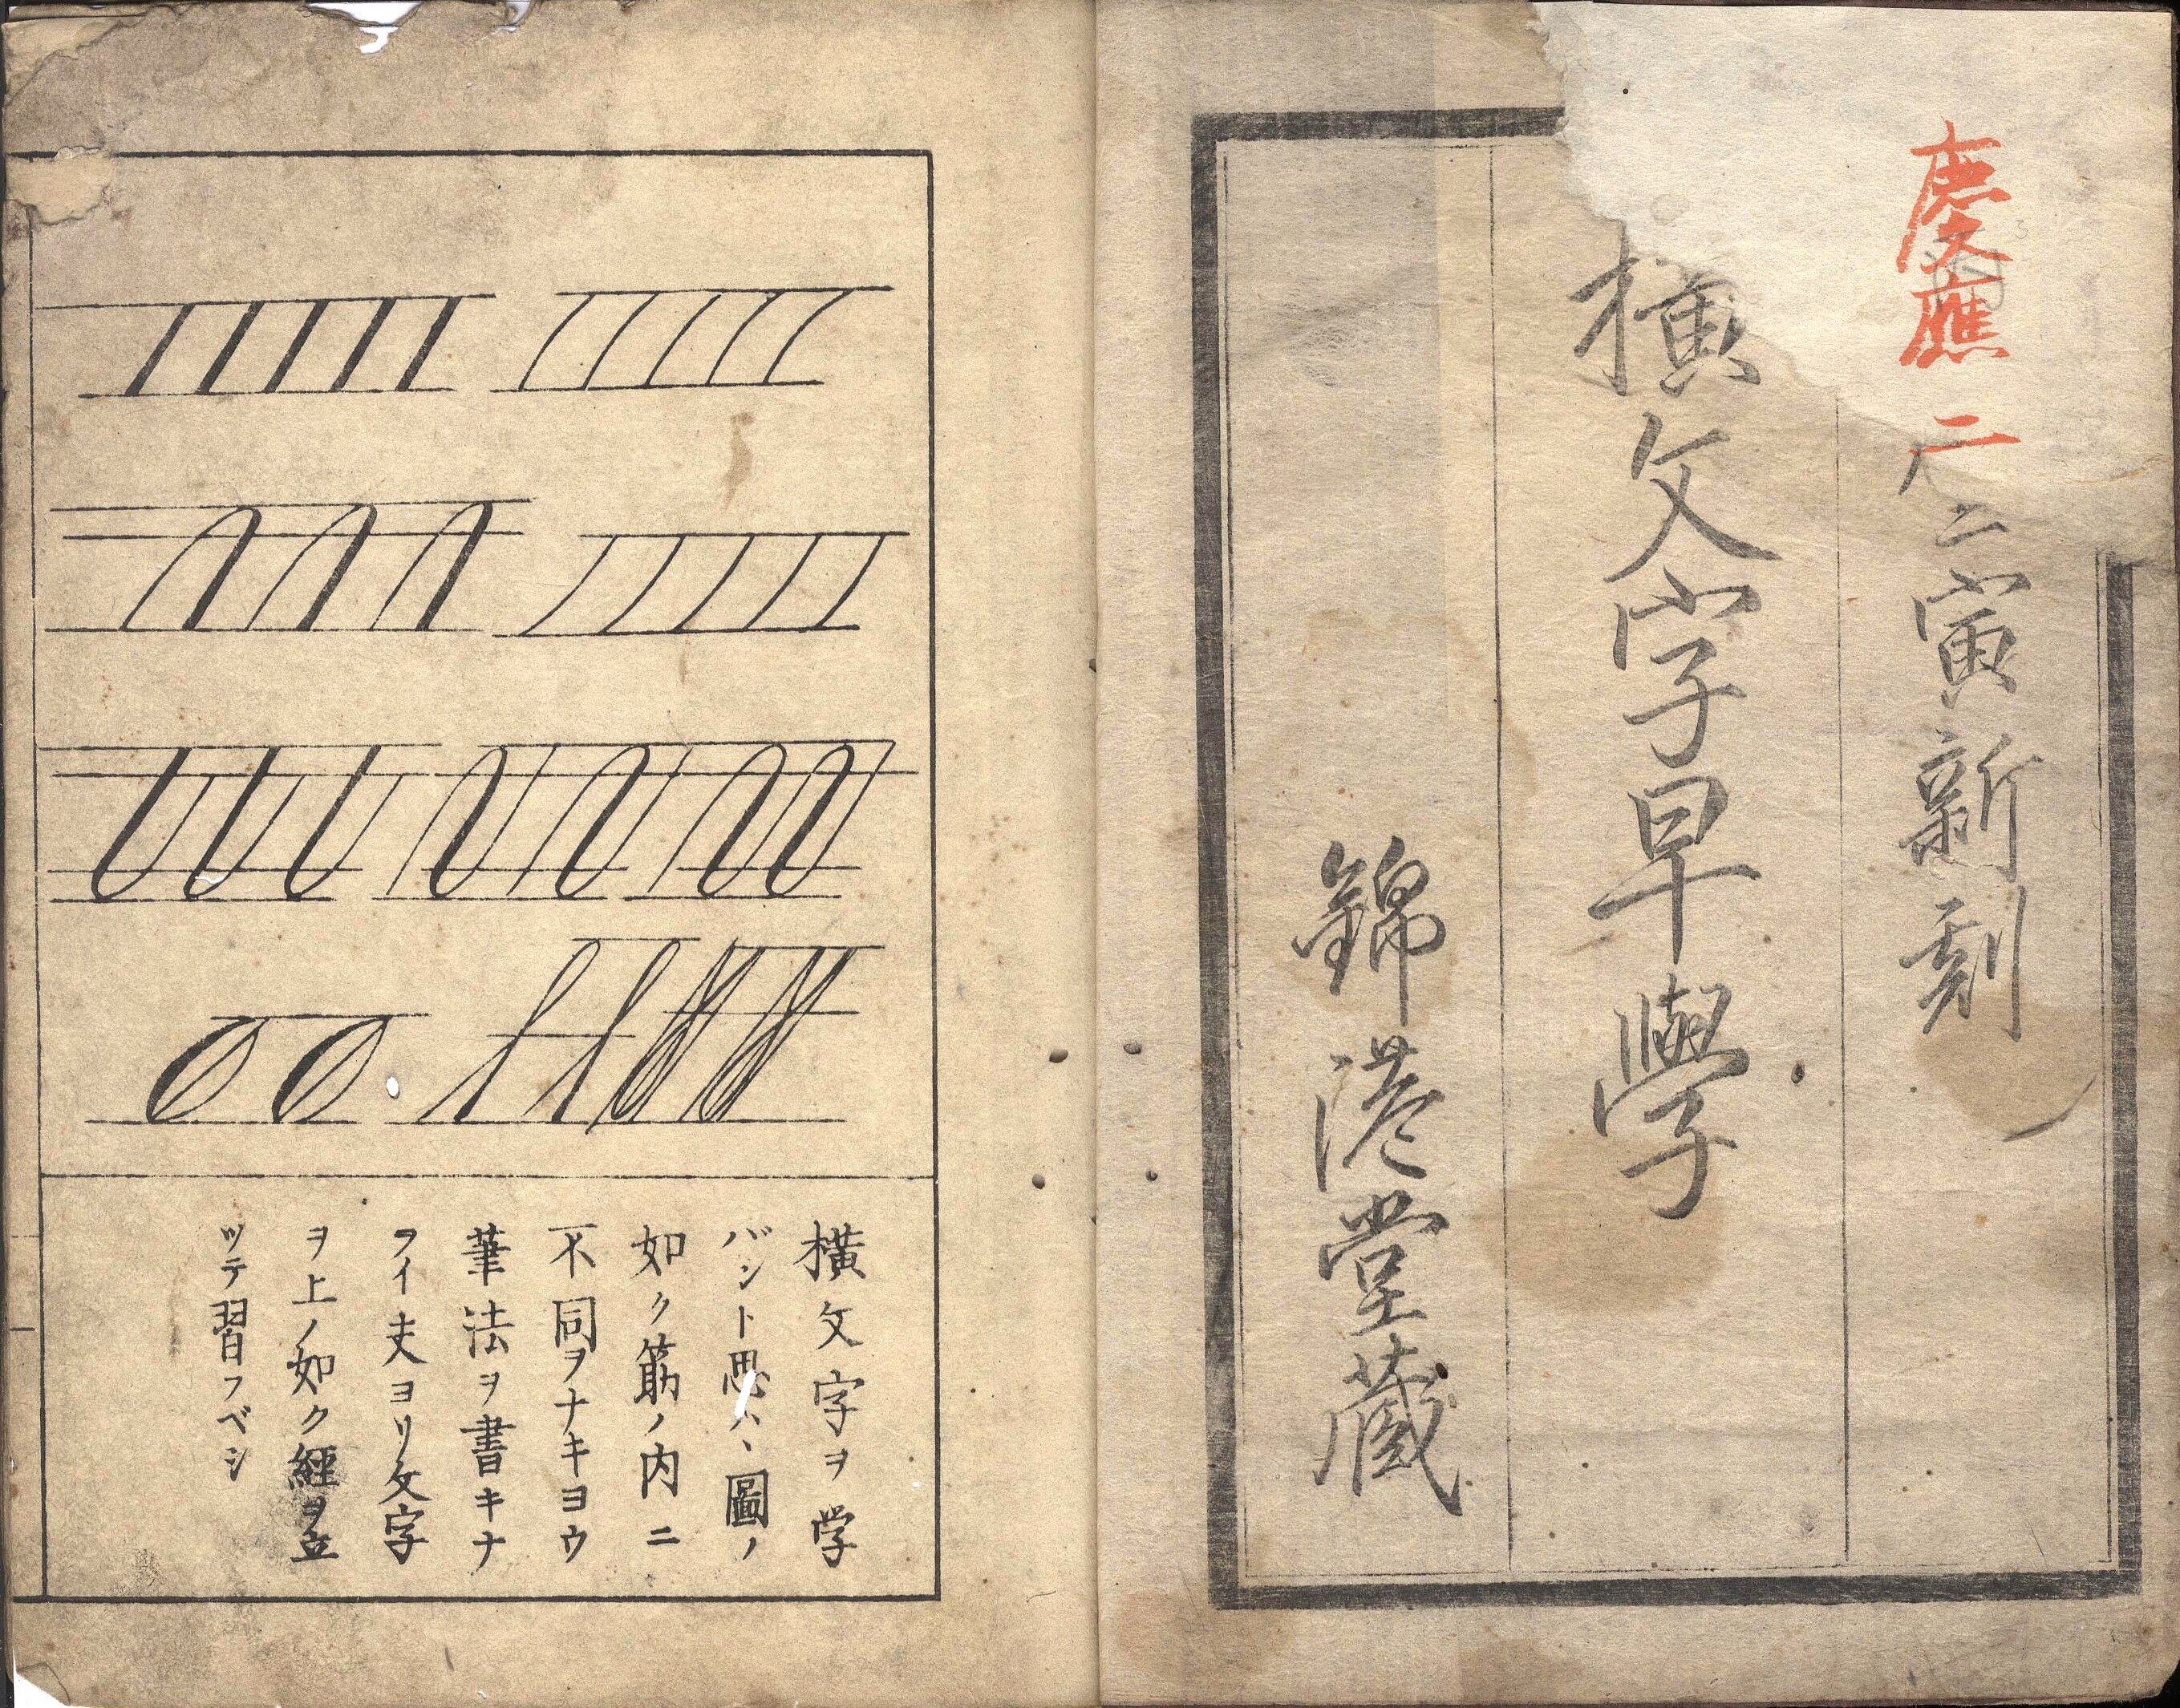 慶應二
二寅新刻
横文字早學
錦港堂蔵
横文字ヲ学
バント思ハヽ圖ノ
如ク筋ノ内ニ
不同ヲナキヨウ
筆法ヲ書キナ
ライ夫ヨリ文字
ヲ上ノ如ク經ヲ立
ツテ習フベシ